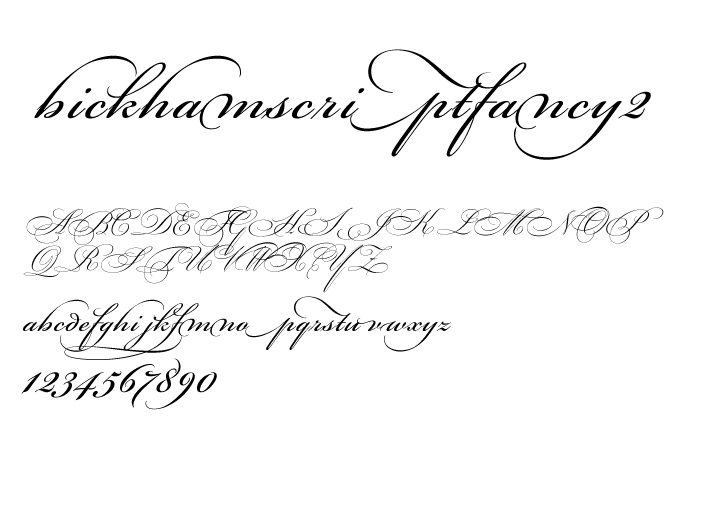 bickhamscriptfancy2
ABCDEFGHIJKLMNOP
QRSTUVWXYZ
abcdefghijklmnopqrstuvwxyz
1234567890